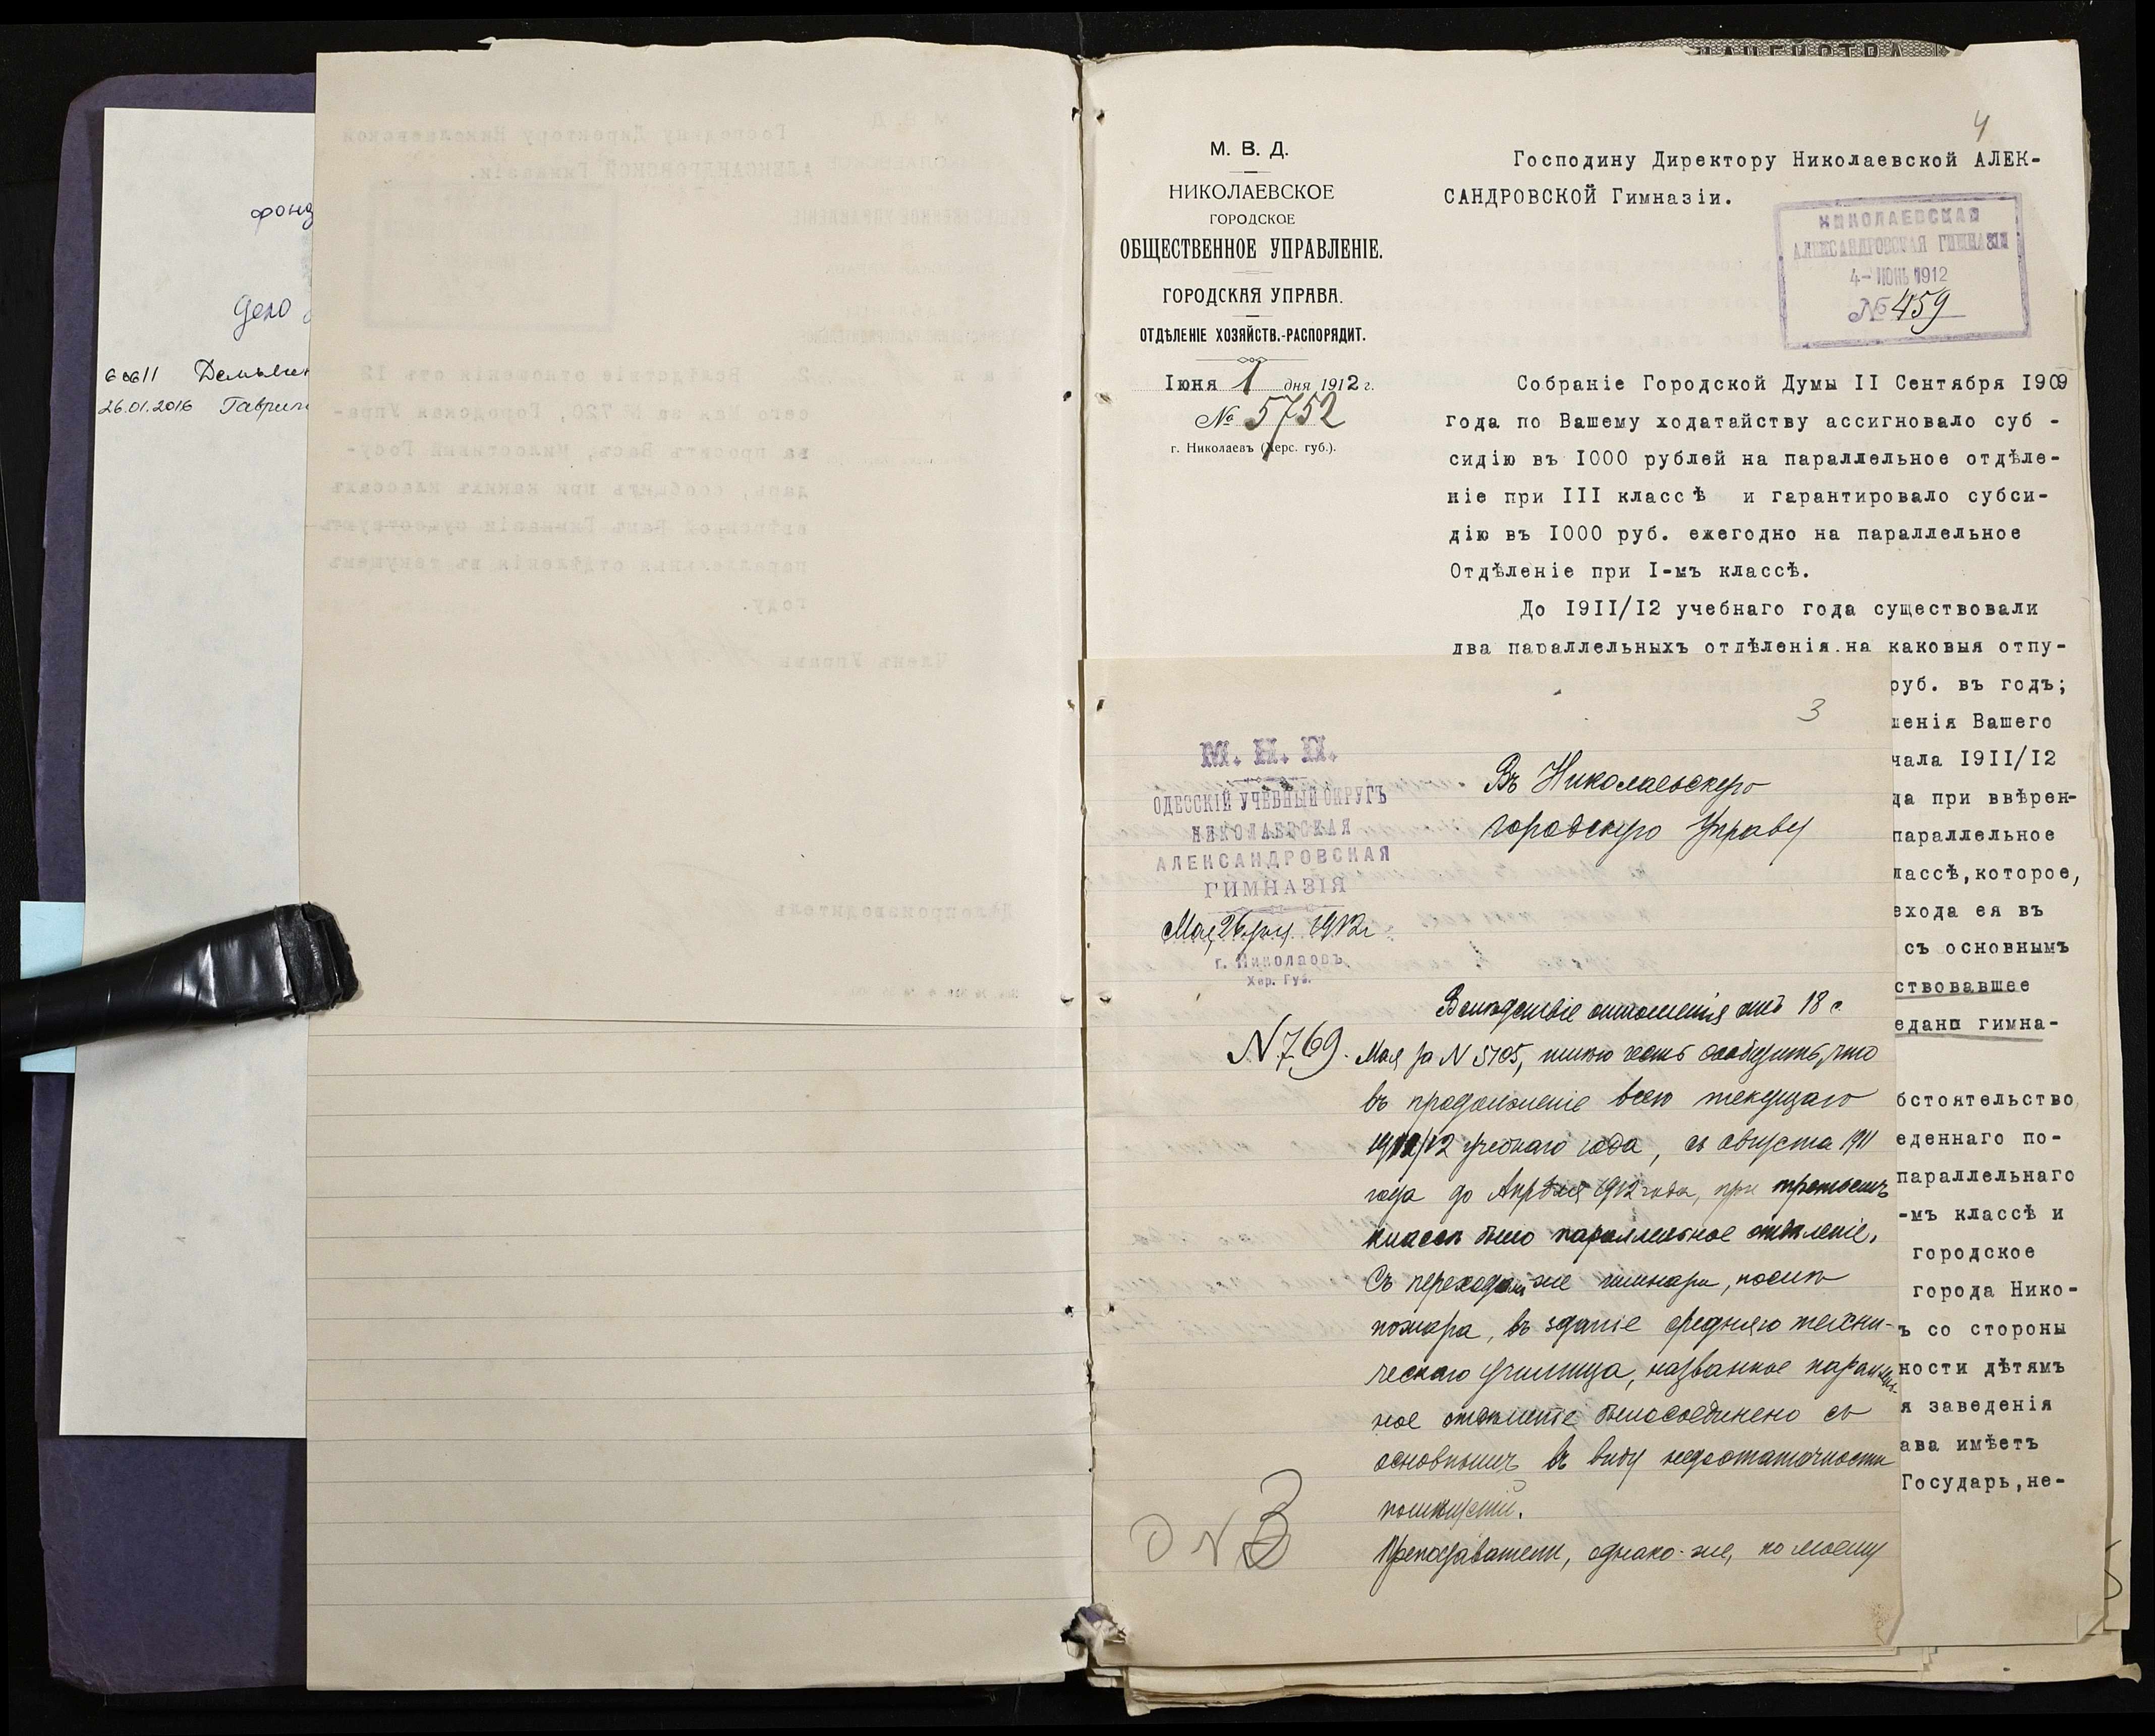 фонд
дело
Гаврил
26.01.2016
М. В. Д.
НИКОЛАЕВСКОЕ
ГОРОДСКОЕ
ОБЩЕСТВЕННОЕ УПРАВЛЕНІЕ.
ГОРОДСКАЯ УПРАВА.
ОТДѢЛЕНІЕ ХОЗЯЙСТВ.-РАСПОРЯДИТ.
Іюня 1 дня 1912 г.
№ 5752
г. Николаевъ (Херс. губ.).
4
Господину Директору Николаевской АЛЕК-
САНДРОВСКОЙ Гимназіи.
НИКОЛАЕВСКАЯ
АЛЕКСАНДРОВСКАЯ ГИМНАЗІЯ
4- ИЮНЬ 1912
№ 459
Собраніе Городской Думы II Сентября I909
года по Вашему ходатайству ассигновало суб -
сидію въ I000 рублей на параллельное отдѣле-
ніе при III классѣ и гарантировало субси-
дію въ I000 руб. ежегодно на параллельное
Отдѣленіе при I-мъ классѣ.
До I9II/I2 учебнаго года существовали
два параллельныхъ отдѣленія.на каковыя отпу-
руб. въ годъ;
шенія Вашего
чала I9II/I2
да при ввѣрен-
параллельное
лассѣ,которое,
ехода ея въ
съ основнымъ
ствовавшее
гимна-
бстоятельство
еденнаго по-
параллельнаго
-мъ классѣ и
городское
города Нико-
ъ со стороны
ности дѣтямъ
я заведенія
ава имѣетъ
Государь,не-
3
М. Н. П.
ОДЕССКІЙ УЧЕБНЫЙ ОКРУГЪ
НИКОЛАЕВСКАЯ
АЛЕКСАНДРОВСКАЯ
ГИМНАЗІЯ
Мая 26 дня 1912 г.
г. Николаевъ,
Хер. Губ.
N 769.
Въ Николаевскую
городскую Управу
Вслѣдствіе отношенія отъ 18 с.
Мая за N 5105, имѣю честь сообщить, что
въ продолженіе всего текущаго
1911/12 учебнаго года, съ августа 1911
года до Апрѣля 1912 года, при третьемъ
классѣ было параллельное отдѣленіе.
Съ переходомъ же гимназіи, послѣ
пожара, въ зданіе средняго техни-
ческаго училища, названное параллель-
ное отдѣленіе было соединено съ
основнымъ въ виду недостаточности
помѣщенія.
Преподаватели, однако-же, по моему